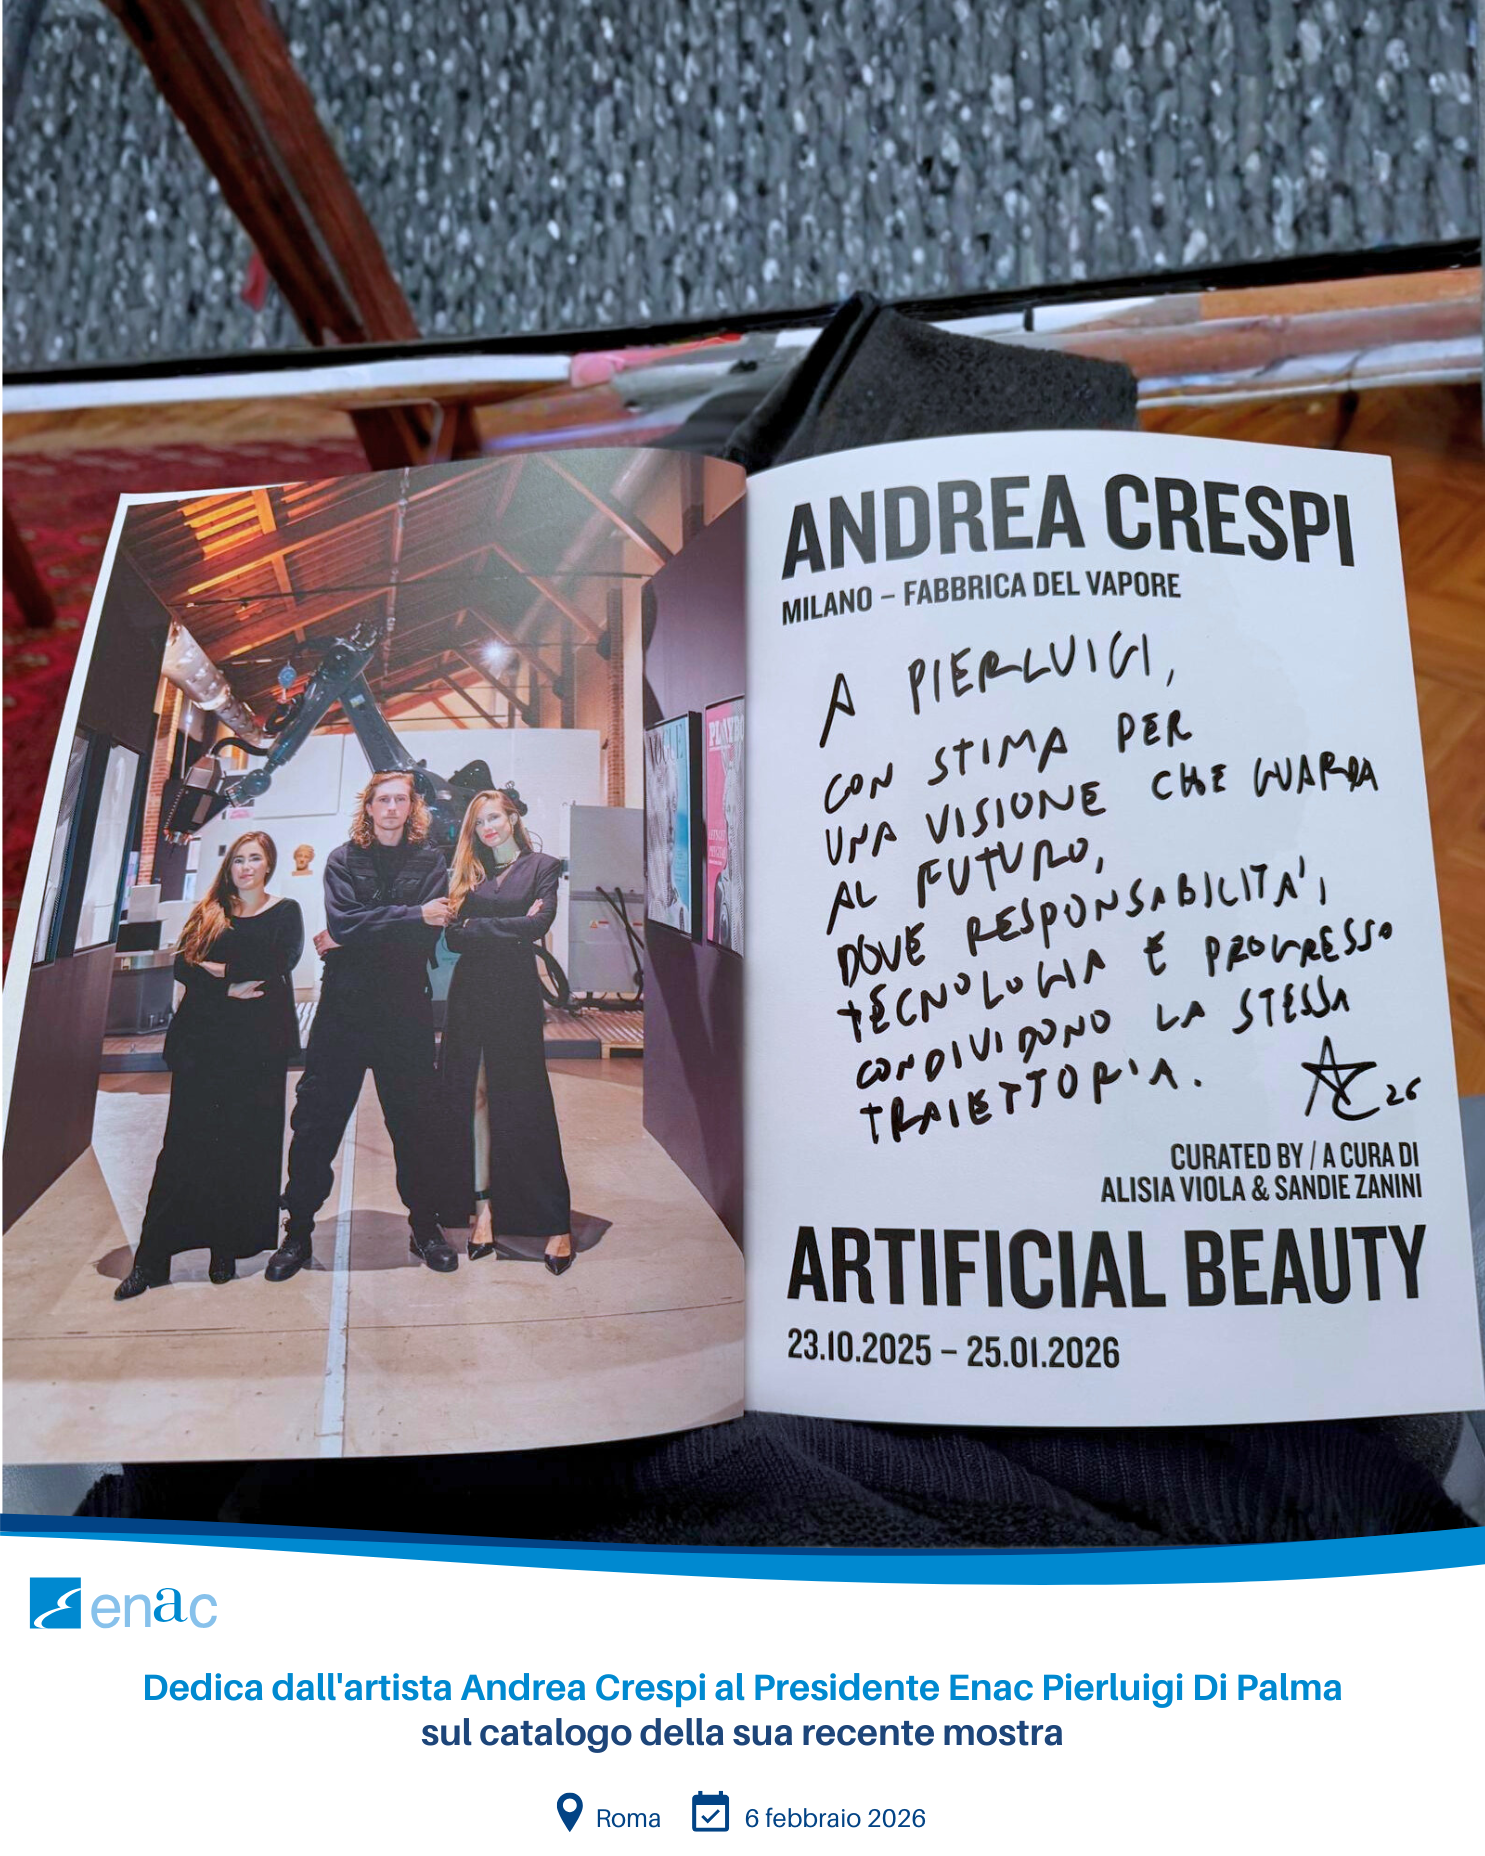 VOGUE
PLAYBO
ANDREA CRESPI
MILANO – FABBRICA DEL VAPORE
A PIERLUIGI,
CON STIMA PER
UNA VISIONE CHE GUARDA
AL FUTURO,
DOVE RESPONSABILITA',
TECNOLOGIA E PROGRESSO
CONDIVIDONO LA STESSA
TRAIETTORIA.
AC 26
CURATED BY / A CURA DI
ALISIA VIOLA & SANDIE ZANINI
ARTIFICIAL BEAUTY
23.10.2025 – 25.01.2026
enac
Dedica dall'artista Andrea Crespi al Presidente Enac Pierluigi Di Palma
sul catalogo della sua recente mostra
Roma 6 febbraio 2026